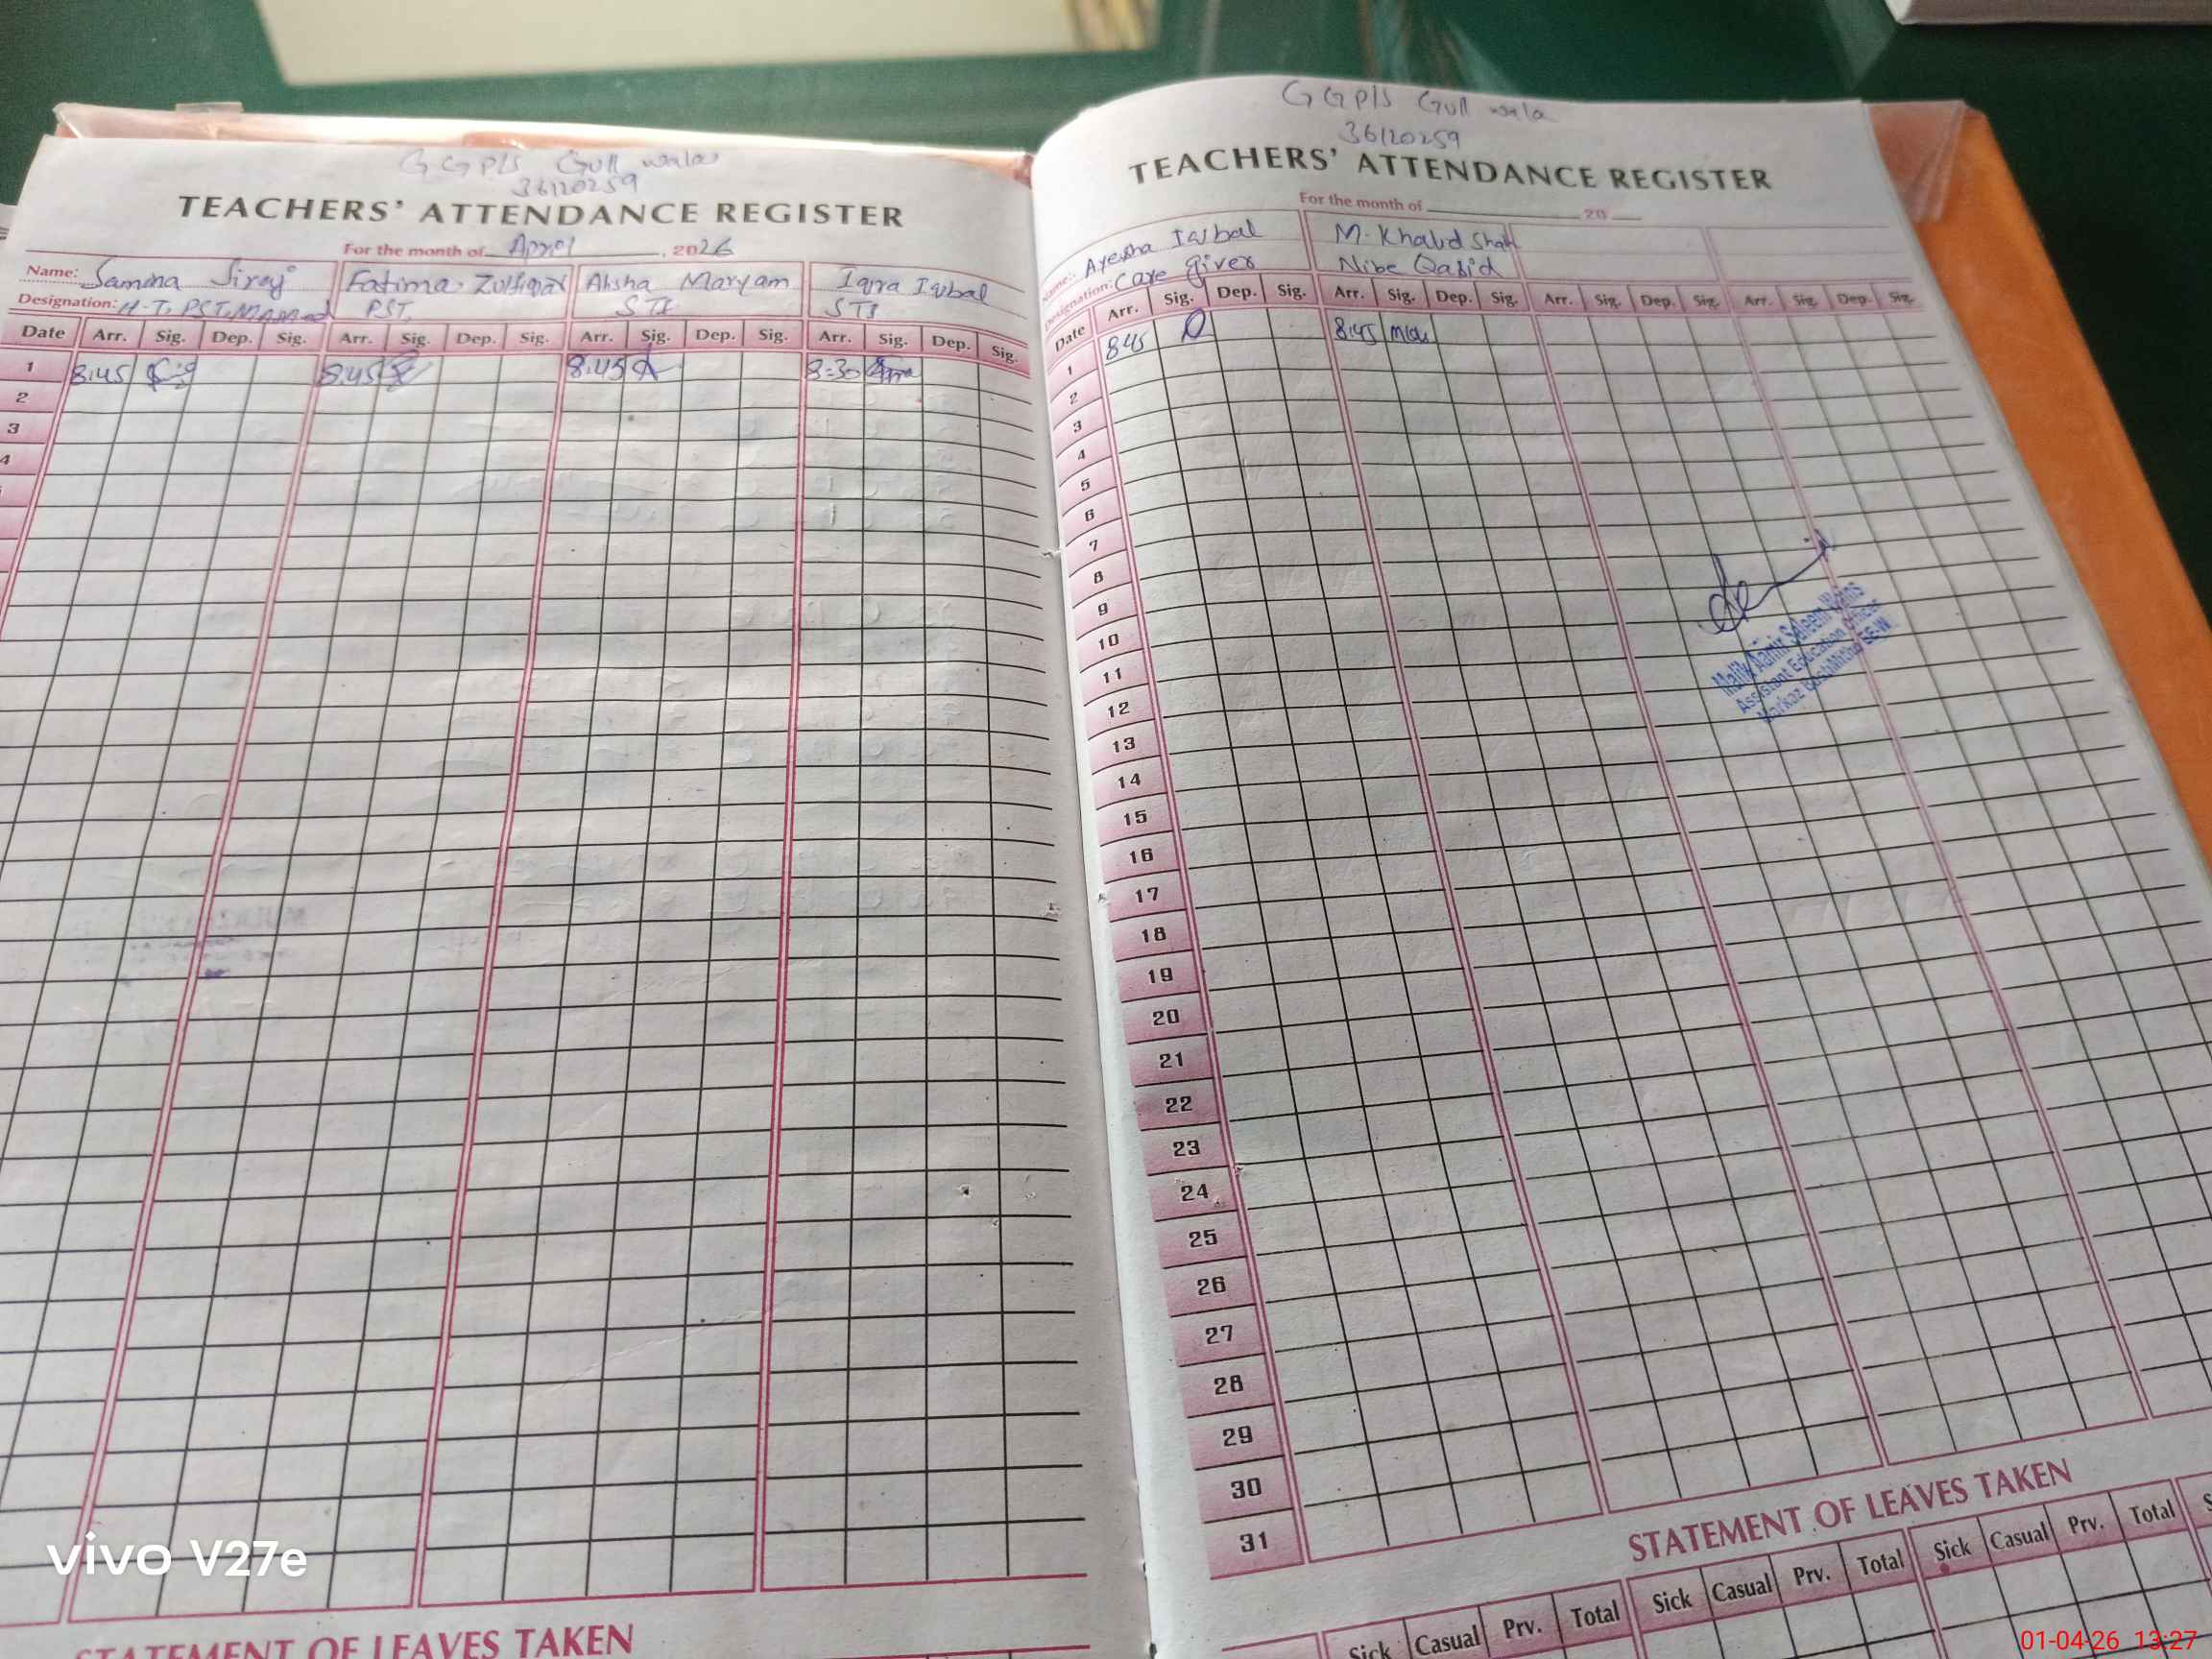 G GP/S Gull wala
36120259
TEACHERS' ATTENDANCE REGISTER
For the month of April, 2026
Name: Samina Siraj Fatima Zulfiqar Ahsha Maryam Iqra Iqbal
Designation: H-T, PST, PST, STI STI
Date Arr. Sig. Dep. Sig. Arr. Sig. Dep. Sig. Arr. Sig. Dep. Sig. Arr. Sig. Dep. Sig.
1 8:45 8:45 8:45 8:30
2
3
4
STATEMENT OF LEAVES TAKEN
G GP/S Gull wala
36120259
TEACHERS' ATTENDANCE REGISTER
For the month of 20
Name: Ayesha Iqbal M. Khalid Shah
Designation: Care giver Nibe Qasid
Date Arr. Sig. Dep. Sig. Arr. Sig. Dep. Sig. Arr. Sig. Dep. Sig. Arr. Sig. Dep. Sig.
1 845 8:45
2
3
4
5
6
7
8
9
10
11
12
13
14
15
16
17
18
19
20
21
22
23
24
25
26
27
28
29
30
31
Malik Aamir Saleem
Assistant Education Officer
Markaz
STATEMENT OF LEAVES TAKEN
Sick Casual Prv. Total Sick Casual Prv. Total Sick Casual Prv. Total
vivo V27e
01-04-26 13:27